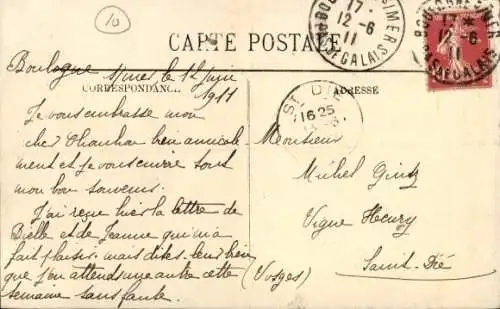 10
17 *
12-6
11
BOULOGNE S MER
PAS DE CALAIS
17 *
12-6
11
BOULOGNE S MER
PAS DE CALAIS
CARTE POSTALE
Boulogne s/mer le 12 juin
1911
CORRESPONDANCE
ADRESSE
ST DIÉ
16 25
Je vous embrasse mon
cher bien amicale
ment et je vous envoie tout
mon bon souvenir.
J'ai reçu hier la lettre de
Bielle et de Jeanne qui m'a
fait plaisir. mais dites-leur bien
que j'en attends une autre cette
semaine sans faute.
Monsieur
Michel
Vigne Henry
Saint-Dié
(Vosges)